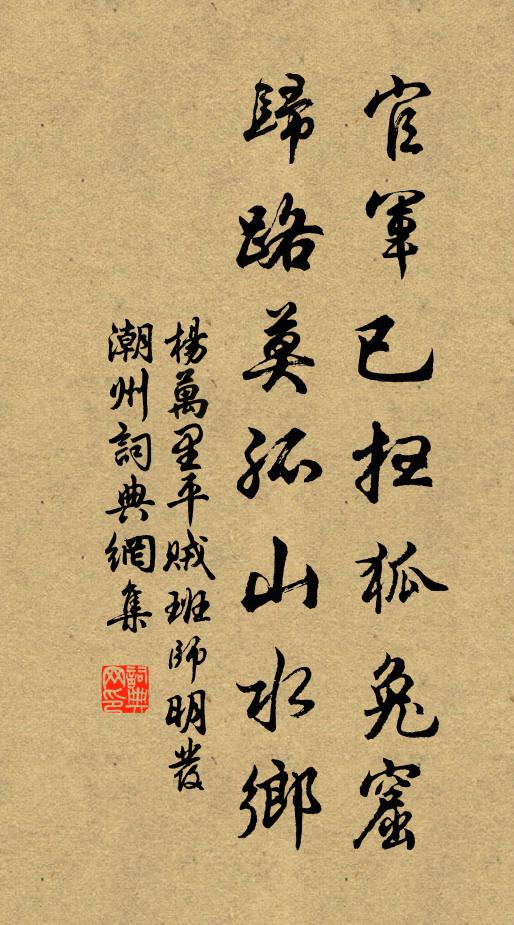 官軍已掃狐兔窟
歸路莫孤山水鄉
楊萬里平賊班師明發
潮州詞典網集
詞典
网印